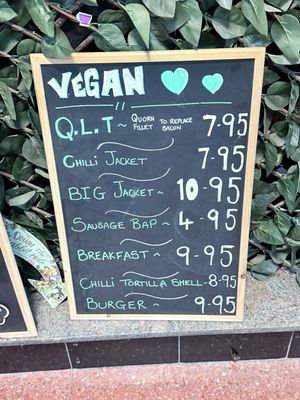 VEGAN
Q.L.T ~ QUORN TO REPLACE 7-95
FILLET BACON
CHILLI JACKET 7-95
BIG JACKET ~ 10-95
SAUSAGE BAP ~ 4-95
BREAKFAST ~ 9-95
CHILLI TORTILLA SHELL - 8-95
BURGER ~ 9-95